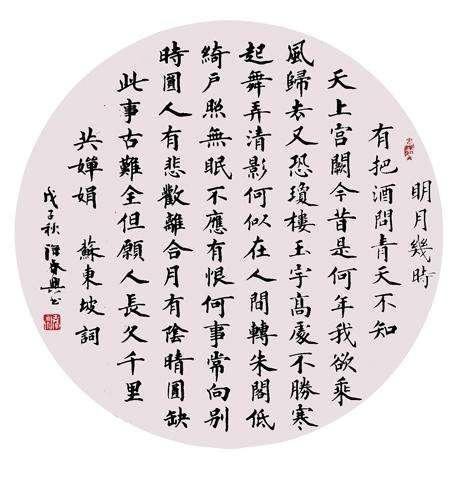 明月幾時
有把酒問青天不知
天上宮闕今昔是何年我欲乘
風歸去又恐瓊樓玉宇高處不勝寒
起舞弄清影何似在人間轉朱閣低
綺戶照無眠不應有恨何事常向别
時圓人有悲歡離合月有陰晴圓缺
此事古難全但願人長久千里
共嬋娟 蘇東坡詞
戊子秋